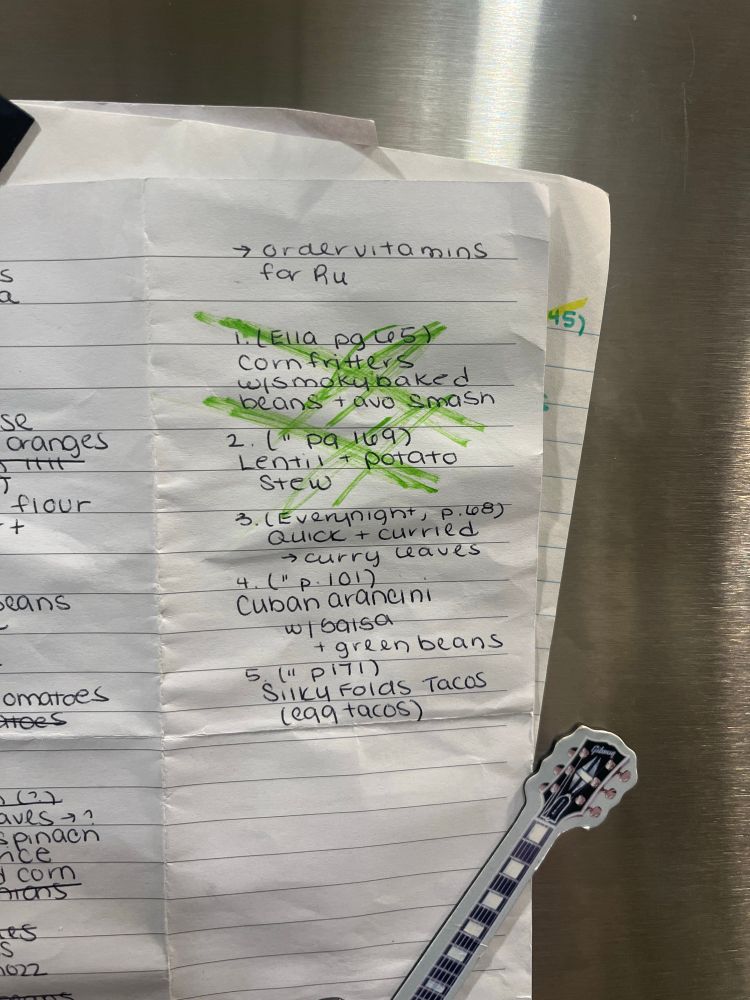 → order vitamins
for Ru
1. (Ella pg 65)
Corn fritters
w/smoky baked
beans + avo smash
2. (" pg 169)
Lentil + potato
Stew
3. (Everynight, p. 68)
Quick + curried
→ curry leaves
4. (" p. 101)
Cuban arancini
w/salsa
+ green beans
5. (" p171)
Silky Folds Tacos
(egg tacos)
s
a
se
oranges
flour
+
beans
omatoes
atoes
(?)
aves → ?
spinach
nce
d corn
nions
es
s
45)
Gibson